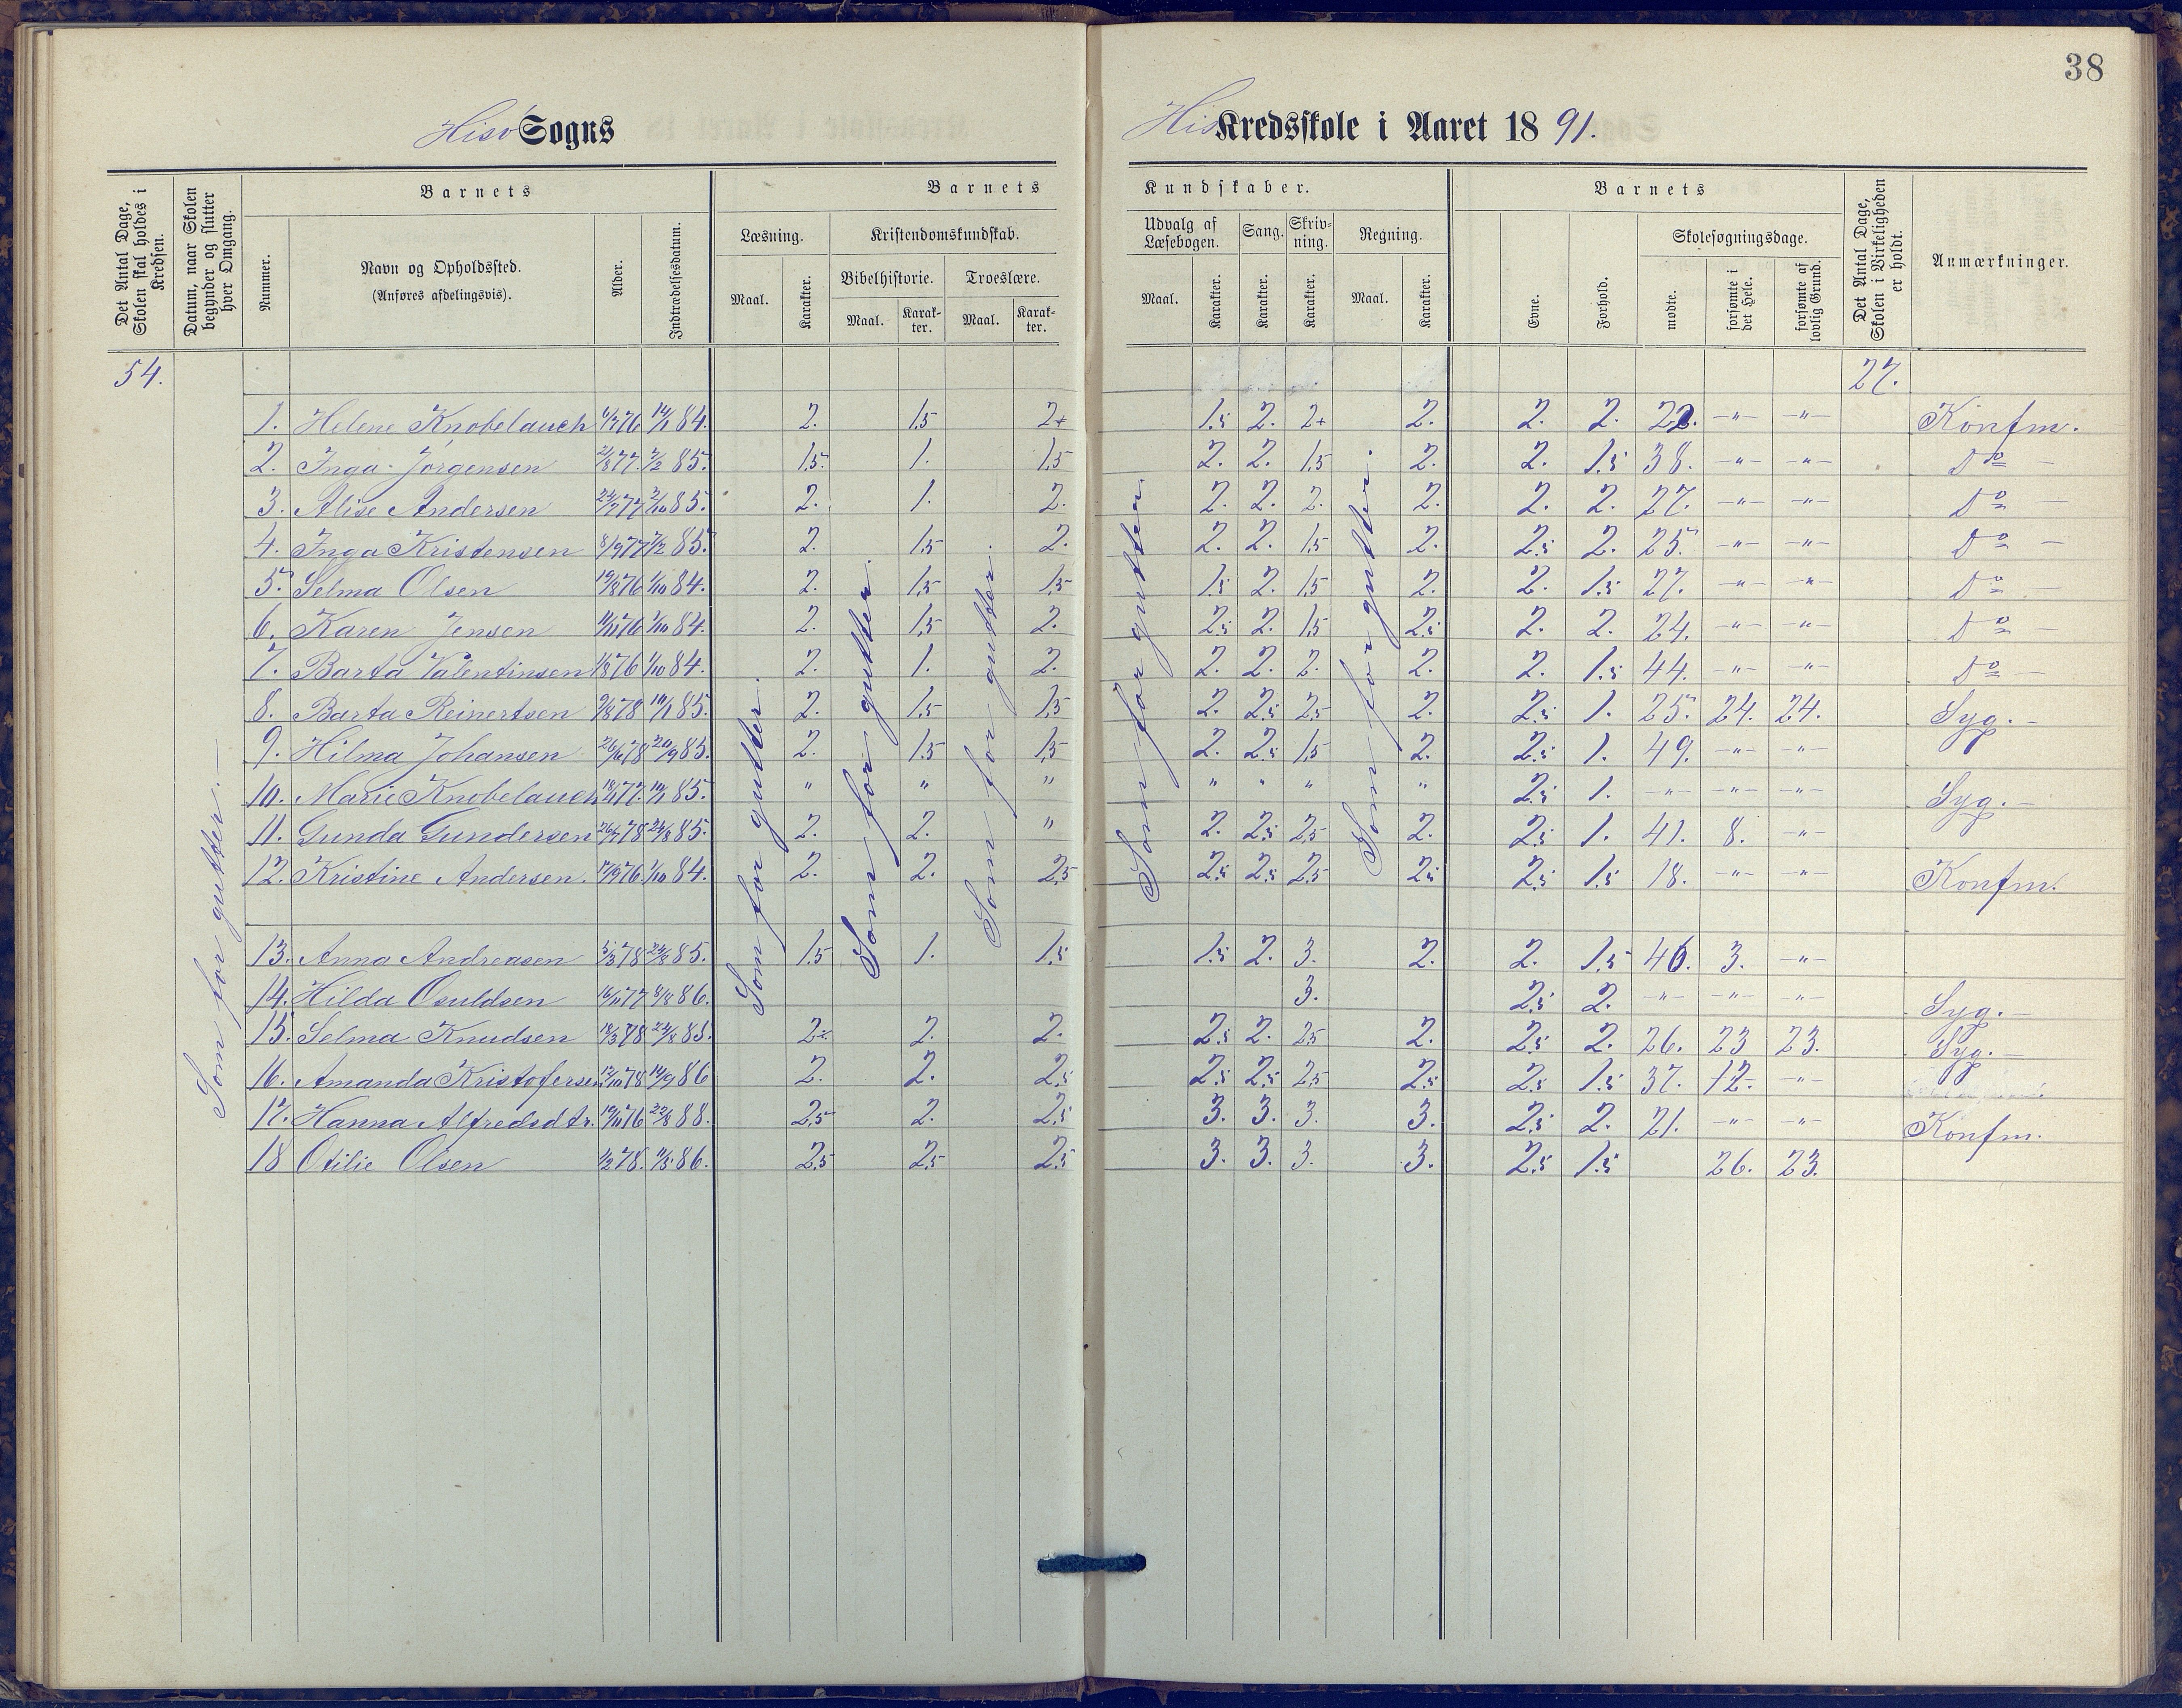 38
Hisø Sogns
His Kredsskole i Aaret 1891.
Det Antal Dage, Skolen skal holdes i Kredsen.
Datum, naar Skolen begynder og slutter hver Omgang.
Barnets
Nummer.
Navn og Opholdssted.
(Anføres afdelingsvis).
Alder.
Indtrædelsesdatum.
Barnets Kundskaber.
Læsning.
Kristendomskundskab.
Bibelhistorie. Troeslære.
Maal. Karakter. Maal. Karak-ter. Maal. Karak-ter.
Udvalg af Læsebogen. Sang. Skriv-ning. Regning.
Maal. Karakter. Karakter. Karakter. Maal. Karakter.
Barnets
Evne. Forhold.
Skolesøgningsdage.
mødte. forsømte i det Hele. forsømte af lovlig Grund.
Det Antal Dage, Skolen i Virkeligheden er holdt.
Anmærkninger.
54. 27.
1. Helene Knobelauch 76 14/1 84. 2. 1.5 2+ 1.5 2. 2+ 2. 2. 2. -"- -"- Konfm.
2. Inga Jørgensen 2/8 77. 2/2 85. 1.5. 1. 1.5 2. 2. 1.5 2. 2. 1.5 38. -"- -"- Do -
3. Alise Andersen 77 2/10 85. 2. 1. 2. 2. 2. 2. 2. 2. 2. 27. -"- -"- Do -
4. Inga Kristensen 8/9 77 2/2 85. 2. 1.5 2. 2. 2. 1.5 2. 2.5 2. 25. -"- -"- Do -
5. Selma Olsen 19/8 76 1/10 84. 2. 1.5 1.5 1.5 2. 1.5 2. 2. 1.5 27. -"- -"- Do -
6. Karen Jensen 11/11 76 1/10 84. 2. 1.5 2. 2.5 2. 1.5 2.5 2. 2. 24. -"- -"- Do -
7. Barta Valentinsen 1/8 76 1/10 84. 2. 1. 2. 2. 2. 2. 2. 2. 1.5 44. -"- -"- Do -
8. Barta Reinertsen 9/8 78 19/1 85. 2. 1.5 1.5 2. 2.5 2.5 2. 2.5 1. 25. 24. 24. Syg. -
9. Hilma Johansen 78 20/9 85. 2. 1.5 1.5 2. 2.5 1.5 2. 2.5 1. 49. -"- -"-
10. Marie Knobelauch 77. 19/1 85. " " " " " " " 2.5 1. -"- -"- -"- Syg. -
11. Gunda Gundersen 26/7 78 24/8 85. 2. 2. " 2. 2.5 2.5 2. 2.5 1. 41. 8. -"-
12. Kristine Andersen. 17/9 76. 1/10 84. 2. 2. 2.5 2.5 2.5 2.5 2.5 2.5 1.5 18. -"- -"- Konfm.
13. Anna Andreasen 5/3 78 24/8 85. 1.5 1. 1.5 1.5 2. 3. 2. 2. 1.5 46. 3. -"-
14. Hilda Osuldsen 16/11 77 8/8 86. 3. 2.5 2. -"- -"- -"- Syg. -
15. Selma Knudsen 18/3 78 24/8 85. 2. 2. 2.5 2. 2.5 2. 2.5 2. 26. 23 23. Syg. -
16. Amanda Kristofersen 12/10 78 14/9 86 2. 2. 2.5 2.5 2.5 2.5 2.5 2.5 1.5 37. 12. -"-
17. Hanna Alfredsdtr. 19/11 76 22/8 88. 2.5 2. 2.5 3. 3. 3. 3. 2.5 2. 21. -"- -"- Konfm.
18 Otilie Olsen 1/2 78. 11/5 86. 2.5 2.5 2.5 3. 3. 3. 3. 2.5 1.5 26. 23.
Som for gutter. -
Som for gutter.
Som for gutter.
Som for gutter.
Som for gutter.
Som for gutter.